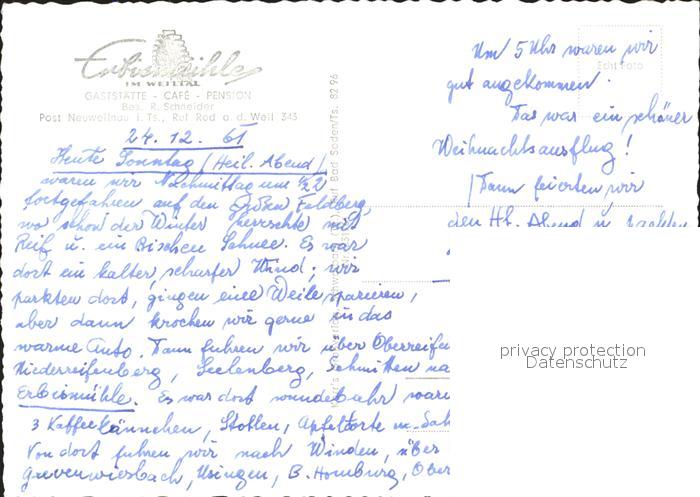 Erbismühle
IM WEILTAL
GASTSTÄTTE - CAFÉ - PENSION
Bes. R. Schneider
Post Neuweilnau i. Ts., Ruf Rod a. d. Weil 343
24.12.61
Heute Sonntag (Heil. Abend)
waren wir Nachmittag um ½2
fortgefahren auf den großen Feldberg,
wo schon der Winter herrschte mit
Reif u. ein Bischen Schnee. Es war
dort ein kalter, scharfer Wind; wir
parkten dort, gingen eine Weile spazieren,
aber dann krochen wir gerne in das
warme Auto. Dann fuhren wir über Oberreifen
Niederreifenberg, Seelenberg, Schmitten na
Erbismühle. Es war dort wunderbahr war
3 Kaffeekännchen, Stollen, Apfeltorte m. Sah
Von dort fuhren wir nach Winden, über
Grevenwiesbach, Usingen, B. Homburg, Ober
Bad Soden/Ts. 82 96
Echt Foto
Um 5 Uhr waren wir
gut angekommen.
Das war ein schöner
Weihnachtsausflug!
Dann feierten wir
den Hl. Abend u.
privacy protection
Datenschutz